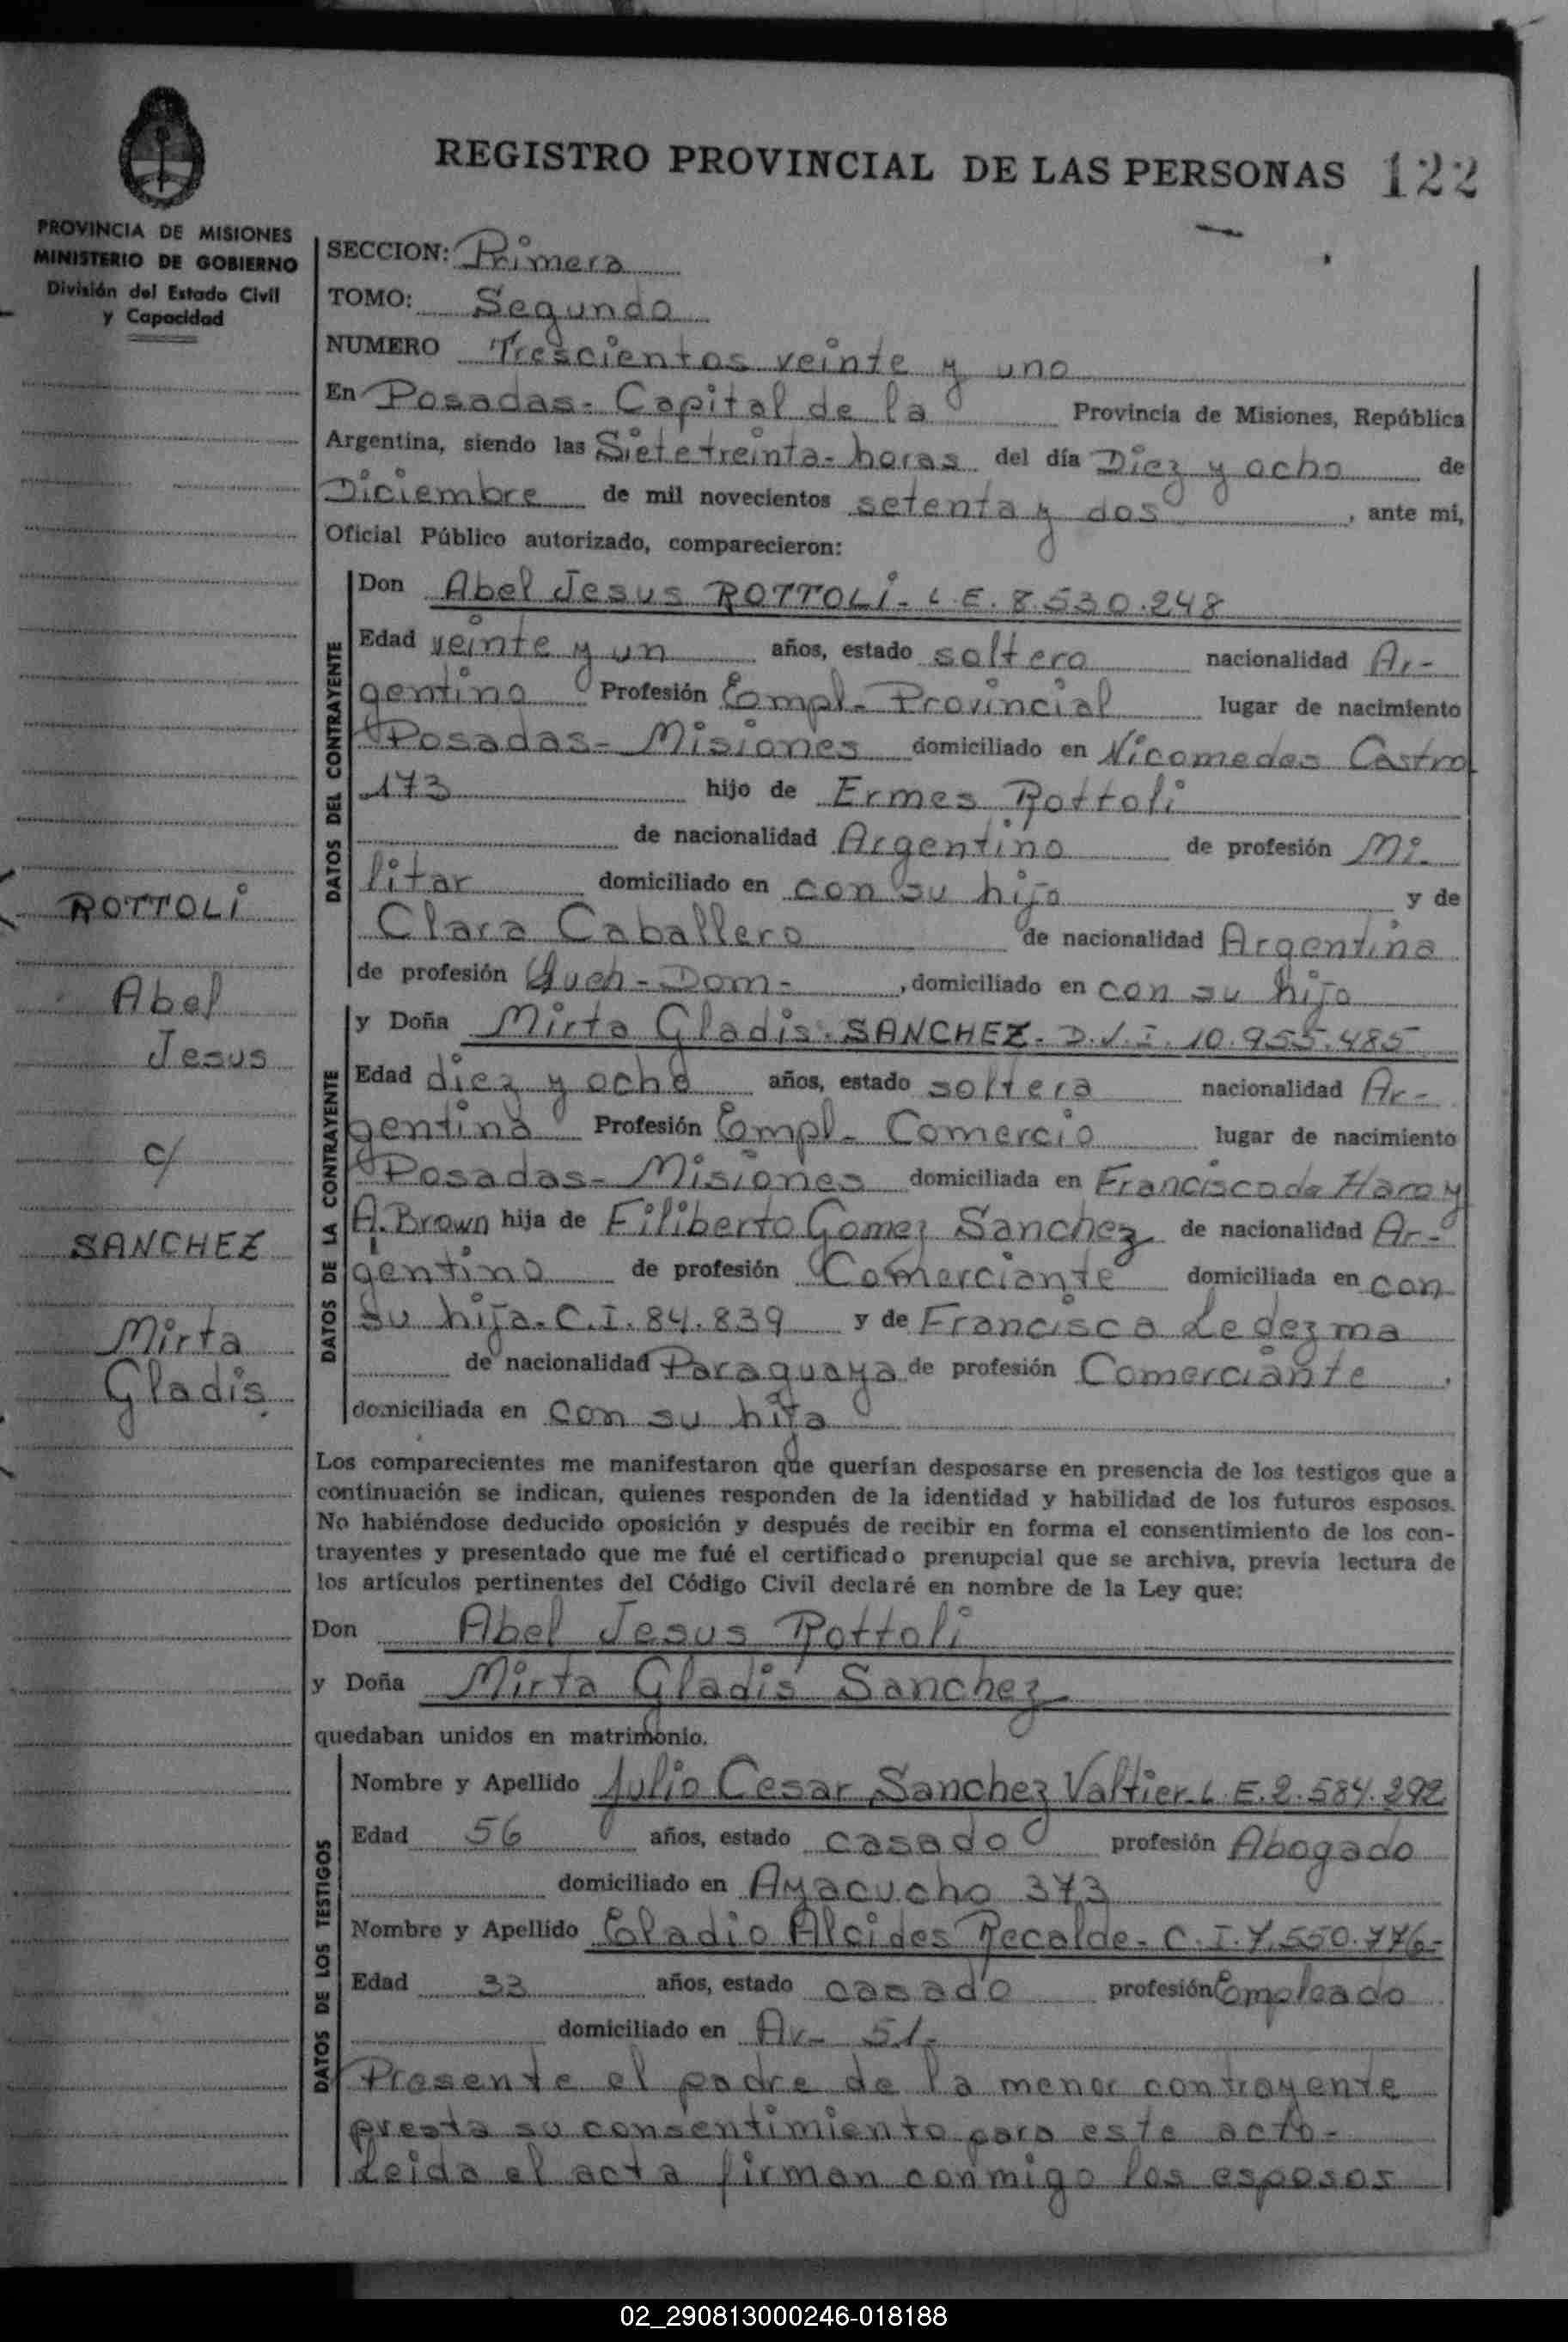 REGISTRO PROVINCIAL DE LAS PERSONAS 122
PROVINCIA DE MISIONES
MINISTERIO DE GOBIERNO
División del Estado Civil
y Capacidad
SECCION: Primera
TOMO: Segundo
NUMERO Trescientos veinte y uno
En Posadas - Capital de la Provincia de Misiones, República
Argentina, siendo las Siete treinta - horas del día Diez y ocho de
Diciembre de mil novecientos setenta y dos, ante mi,
Oficial Público autorizado, comparecieron:
DATOS DEL CONTRAYENTE
Don Abel Jesus ROTTOLI - L.E. 8.530.248
Edad veinte y un años, estado soltero nacionalidad Ar-
gentino Profesión Empl- Provincial lugar de nacimiento
Posadas - Misiones domiciliado en Nicomedes Castro
173 hijo de Ermes Rottoli
de nacionalidad Argentino de profesión Mi-
litar domiciliado en con su hijo y de
Clara Caballero de nacionalidad Argentina
de profesión Queh - Dom -, domiciliado en con su hijo
DATOS DE LA CONTRAYENTE
y Doña Mirta Gladis SANCHEZ - D.N.I. 10.955.485
Edad diez y ocho años, estado soltera nacionalidad Ar-
gentina Profesión Empl- Comercio lugar de nacimiento
Posadas - Misiones domiciliada en Francisco de Haro y
A. Brown hija de Filiberto Gomez Sanchez de nacionalidad Ar-
gentino de profesión Comerciante domiciliada en con
su hija - C.I. 84.839 y de Francisca Ledezma
de nacionalidad Paraguaya de profesión Comerciante,
domiciliada en con su hija
ROTTOLI
Abel
Jesus
c/
SANCHEZ
Mirta
Gladis
Los comparecientes me manifestaron que querían desposarse en presencia de los testigos que a
continuación se indican, quienes responden de la identidad y habilidad de los futuros esposos.
No habiéndose deducido oposición y después de recibir en forma el consentimiento de los con-
trayentes y presentado que me fué el certificado prenupcial que se archiva, previa lectura de
los artículos pertinentes del Código Civil declaré en nombre de la Ley que:
Don Abel Jesus Rottoli
y Doña Mirta Gladis Sanchez
quedaban unidos en matrimonio.
DATOS DE LOS TESTIGOS
Nombre y Apellido Julio Cesar Sanchez Valtier - L.E. 2.584.292
Edad 56 años, estado casado profesión Abogado
domiciliado en Ayacucho 373
Nombre y Apellido Eladio Alcides Recalde - C.I. 7.550.776-
Edad 33 años, estado casado profesión Empleado
domiciliado en Av- 51-
Presente el padre de la menor contrayente
presta su consentimiento para este acto -
Leida el acta firman conmigo los esposos
02_290813000246-018188